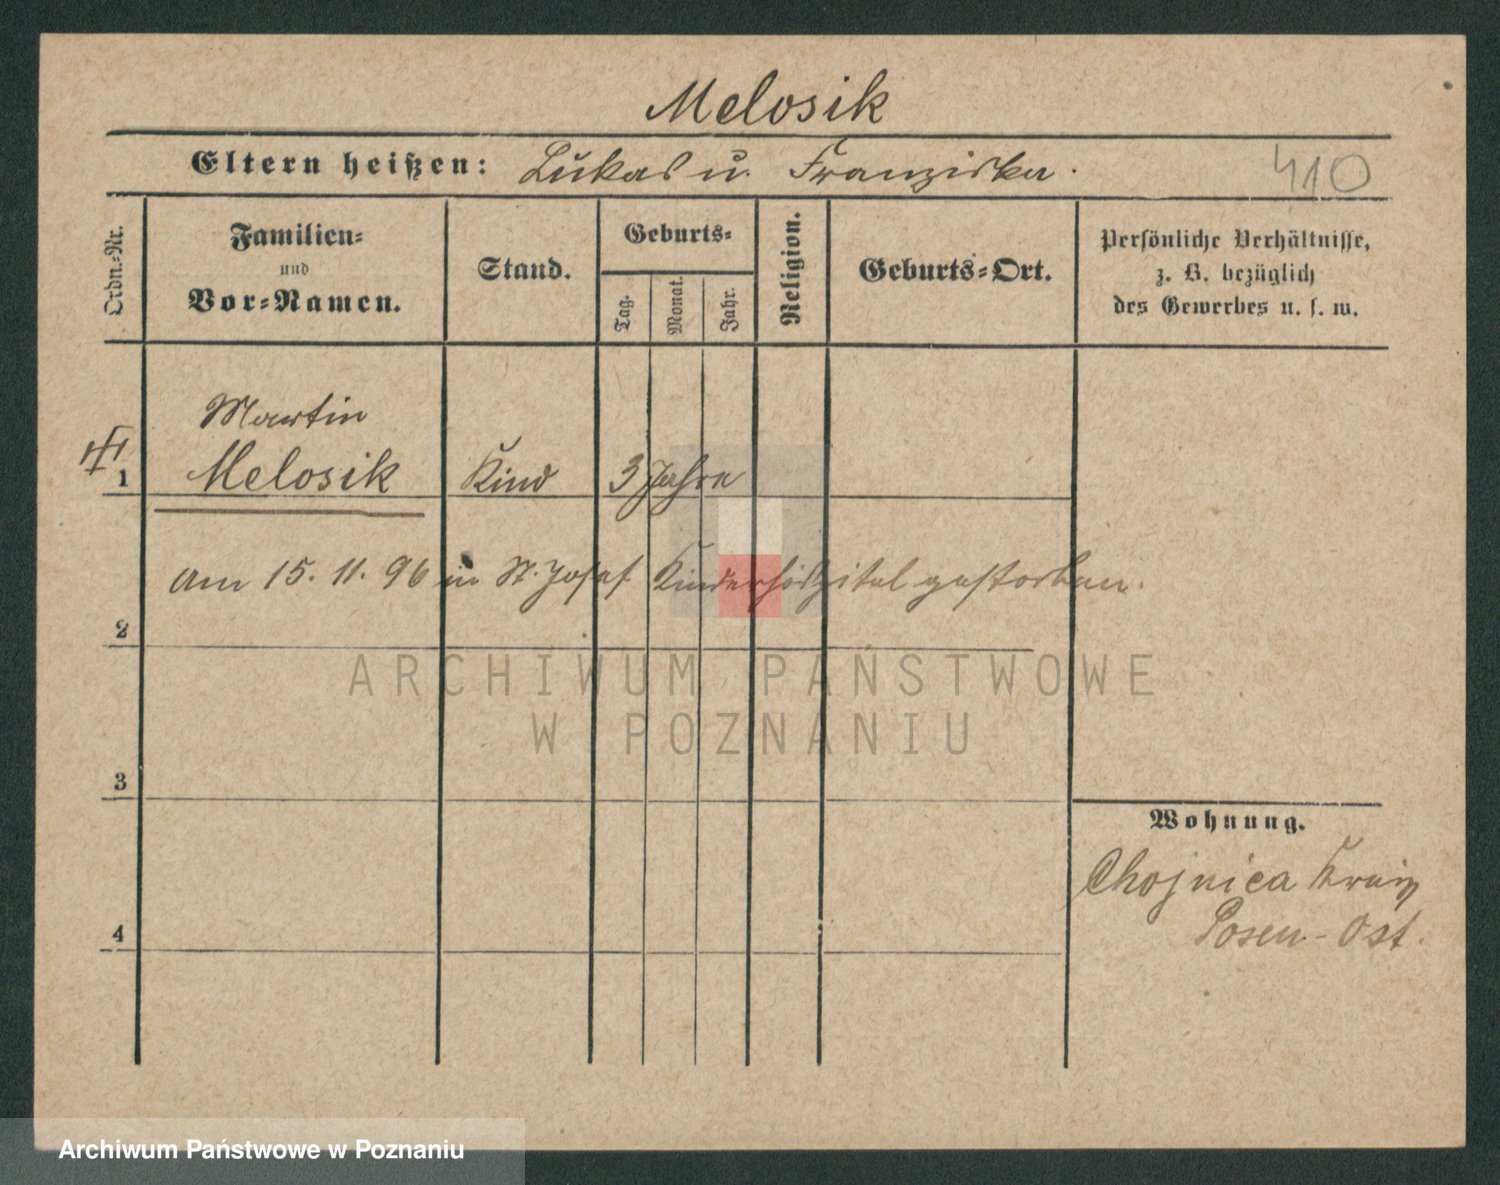 Melosik
Eltern heißen: Lukas u. Franziska.
410
Ordn.-Nr.
Familien-
und
Vor-Namen.
Stand.
Geburts-
Tag.
Monat.
Jahr.
Religion.
Geburts-Ort.
Persönliche Verhältnisse,
z. B. bezüglich
des Gewerbes u. s. w.
Martin
1 Melosik Kind 3 Jahre
am 15. 11. 96 in St. Josef Kinderhospital gestorben.
2
ARCHIWUM PAŃSTWOWE
W POZNANIU
3
Wohnung.
Chojnica Kreis
Posen-Ost.
4
Archiwum Państwowe w Poznaniu